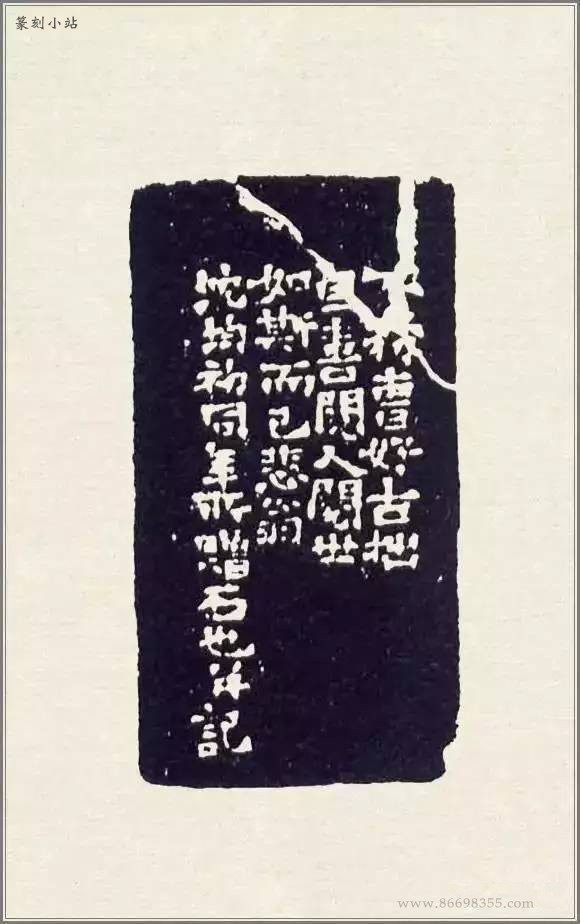 篆刻小站
曹好古拙
書閱人閱世
如斯而已悲翁
沈均初同年所贈石也并記
www.86698355.com